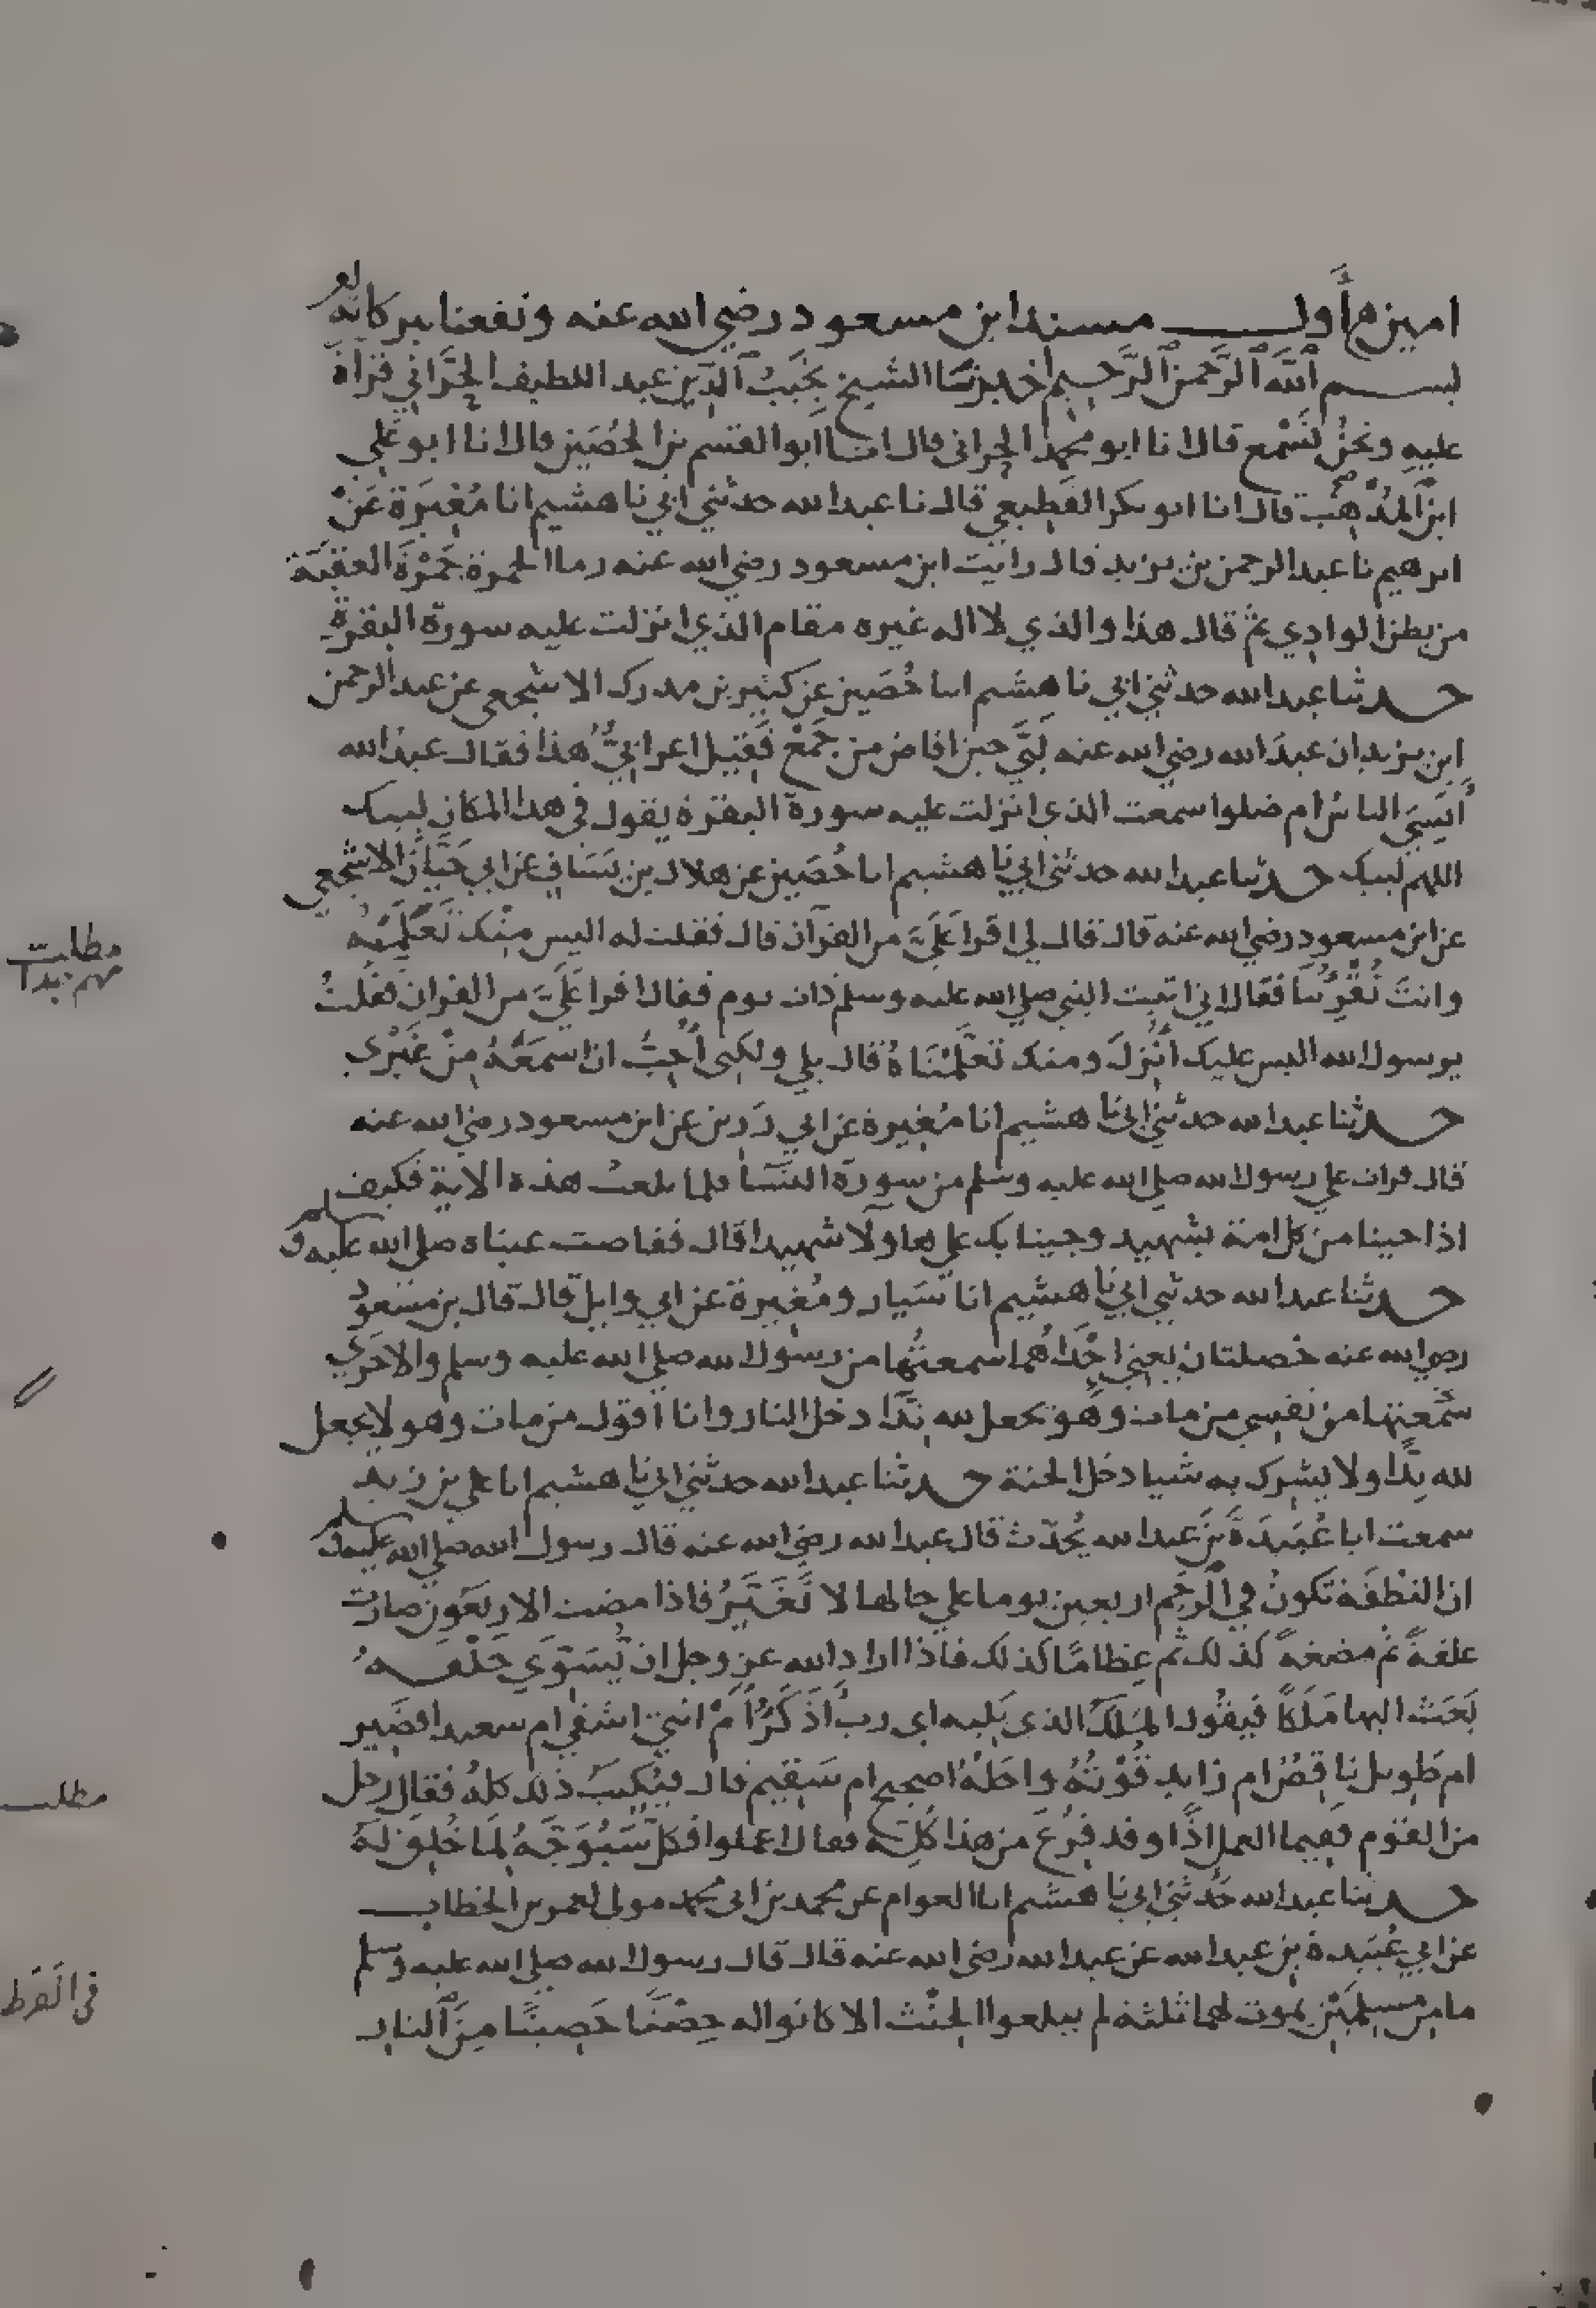 امين م أول مسند ابن مسعود رضي الله عنه ونفعنا ببركاته
بسم الله الرحمن الرحيم اخبرنا الشيخ نجيب الدين عبد اللطيف الحراني قراة
عليه ونحن نسمع قال انا ابو محمد الحراني قال انا ابو القسم بن الحصين قال انا ابو علي
ابن المذهب قال انا ابو بكر القطيعي قال نا عبد الله حدثني ابي نا هشيم انا مغيرة عن
ابرهيم نا عبد الرحمن بن يزيد قال رايت ابن مسعود رضي الله عنه رما الجمرة جمرة العقبة
من بطن الوادي ثم قال هذا والذي لا اله غيره مقام الذي انزلت عليه سورة البقرة
حدثنا عبد الله حدثني ابي نا هشيم انا حصين عن كثير بن مدرك الاشجعي عن عبد الرحمن
ابن يزيد ان عبد الله رضي الله عنه لبى حين افاض من جمع فقيل اعرابي هذا فقال عبد الله
أنسي الناس ام ضلوا سمعت الذي انزلت عليه سورة البقرة يقول في هذا المكان لبيك
اللهم لبيك حدثنا عبد الله حدثني ابي نا هشيم انا حصين عن هلال بن يساف عن ابي حيان الاشجعي
عن ابن مسعود رضي الله عنه قال قال لي اقرا علي من القرآن قال فقلت له اليس منك تعلمته
وانت تقرئنا فقال اني اتيت النبي صلى الله عليه وسلم ذات يوم فقال اقرا علي من القران فقلت
يرسول الله اليس عليك أنزل ومنك تعلمناه قال بلى ولكني أحب ان اسمعه من غيري
حدثنا عبد الله حدثني ابي نا هشيم انا مغيرة عن ابي رزين عن ابن مسعود رضي الله عنه
قال قرات على رسول الله صلى الله عليه وسلم من سورة النسا فلما بلغت هذه الاية فكيف
اذا جينا من كل امة بشهيد وجينا بك على هاولا شهيدا قال ففاضت عيناه صلى الله عليه وسلم
حدثنا عبد الله حدثني ابي نا هشيم انا سيار ومغيرة عن ابي وايل قال قال بن مسعود
رضي الله عنه خصلتان يعني احداهما سمعتها من رسول الله صلى الله عليه وسلم والاخرى
سمعتها من نفسي من مات وهو يجعل لله ندا دخل النار وانا أقول من مات وهو لا يجعل
لله ندا ولا يشرك به شيا دخل الجنة حدثنا عبد الله حدثني ابي نا هشيم انا علي بن زيد
سمعت ابا عبيدة بن عبد الله يحدث قال عبد الله رضي الله عنه قال رسول الله صلى الله عليه وسلم
ان النطفة تكون في الرحم اربعين يوما على حالها لا تغير فاذا مضت الاربعون صارت
علقة ثم مضغة كذلك ثم عظاما كذلك فاذا اراد الله عز وجل ان يسوي خلقه
بعث اليها ملكا فيقول الملك الذي يليه اي رب أذكر أم انثى اشقي ام سعيد اقصير
ام طويل ناقص ام زايد قوته واجله اصحيح ام سقيم قال فيكتب ذلك كله فقال رجل
من القوم ففيما العمل اذا وقد فرغ من هذا كله فقال اعملوا فكل سيوجه لما خلق له
حدثنا عبد الله حدثني ابي نا هشيم انا العوام عن محمد بن ابي محمد مولى لعمر بن الخطاب
عن ابي عبيدة بن عبد الله عن عبد الله رضي الله عنه قال قال رسول الله صلى الله عليه وسلم
ما من مسلمين يموت لهما ثلثة لم يبلغوا الحنث الا كانوا له حصنا حصينا من النار
مطلب
مهم جدا
مطلب
في الفرط